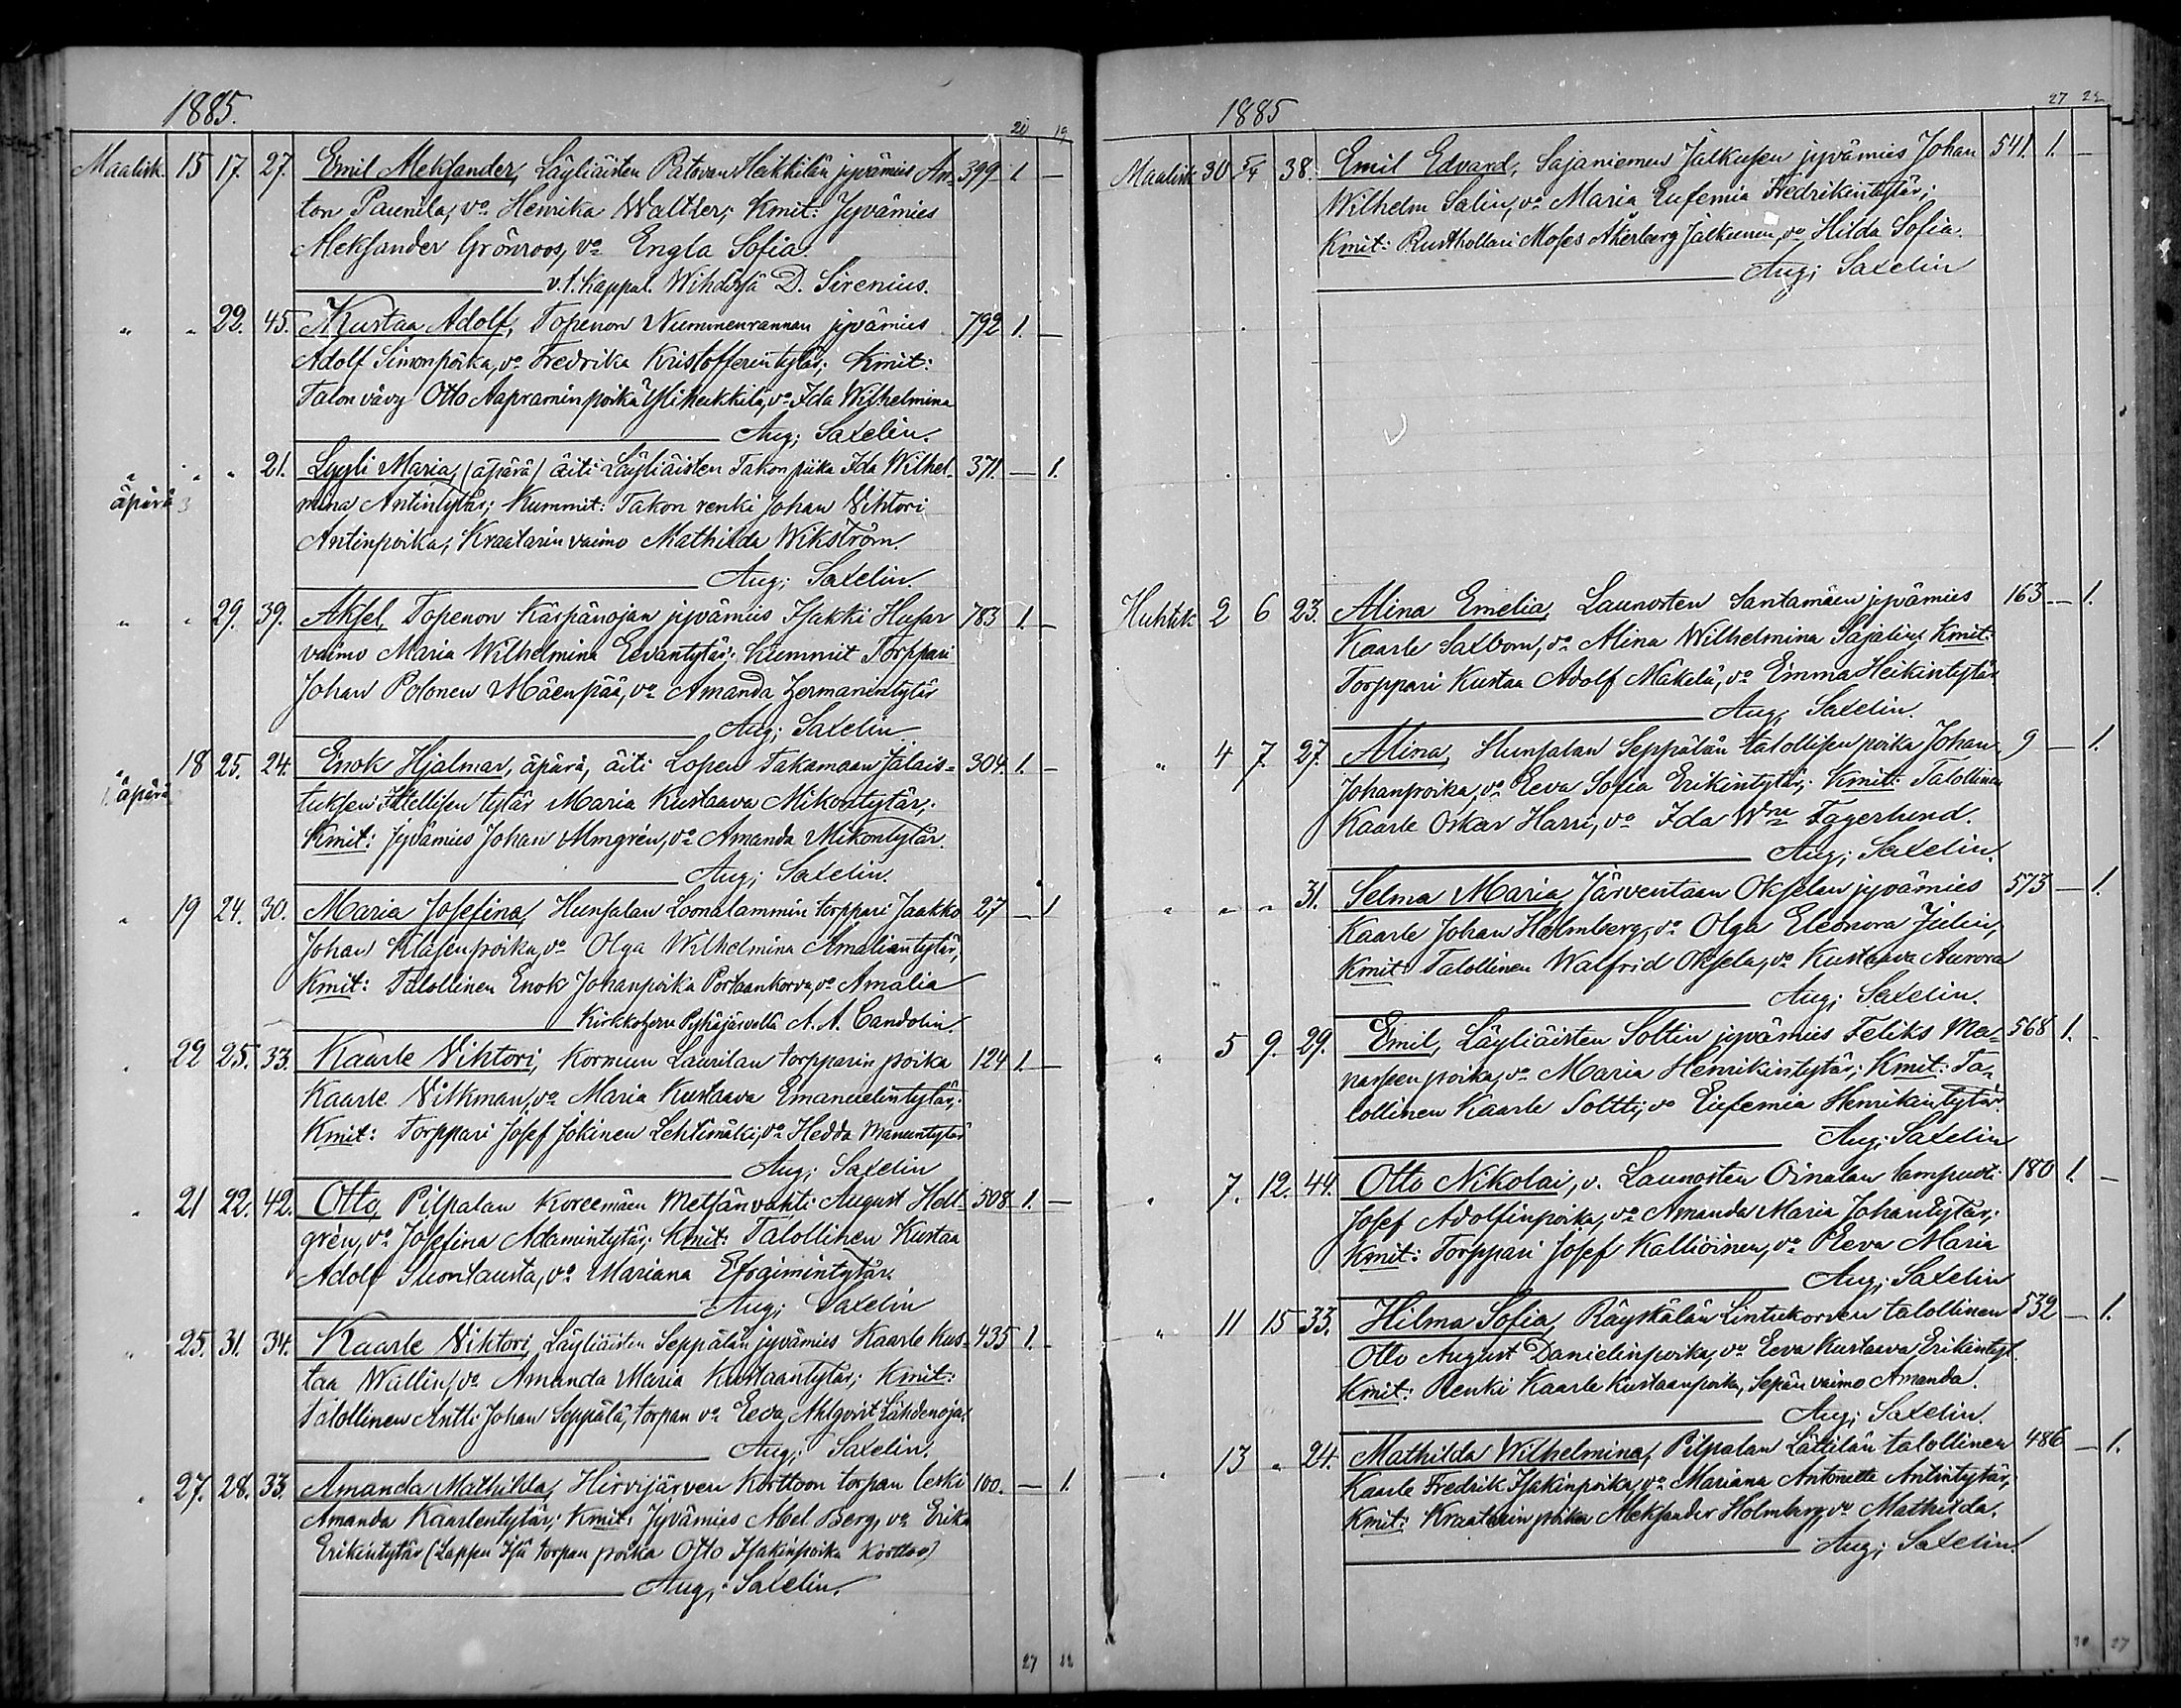 1885.
20 19
Maalisk. 15 17. 27. Emil Aleksander, Läyliäisten Patovan Heikkilän jyvämies An- 399 1. —
ton Paunila, vo Henrika Walter; Kmit: Jyvämies
Aleksander Grönroos, vo Engla Sofia.
v.t. Kappal. Wihdissä D. Sirenius.
" " 22. 45. Kustaa Adolf, Topenon Nummenrannan jyvämies 792 1. —
Adolf Simonpoika, vo Fredrika Kristofferintytär; Kmit:
Talon vävy Otto Aapraminpoika Yliheikkilä, vo Ida Wilhelmina
Aug; Saxelin.
" " " 21. Lyyli Maria, (äpärä) äiti Läyliäisten Takon piika Ida Wilhel- 371. — 1.
äpärä 3 mina Antintytär; Kummit: Takon renki Johan Vihtori
Antinpoika, Kraatarin vaimo Mathilda Wikström.
Aug; Saxelin.
" " 29. 39. Aksel, Topenon Kärpänojan jyvämies Isakki Husar 783 1. —
vaimo Maria Wilhelmina Eevantytär; Kummit Torppari
Johan Polonen Mäenpää, vo Amanda Hermanintytär
Aug; Saxelin
" 18 25. 24. Enok Hjalmar, äpärä, äiti Lopen Takamaan Jalais- 304. 1. —
äpärä tuksen itsellisen tytär Maria Kustaava Mikontytär;
Kmit: Jyvämies Johan Almgrén, vo Amanda Mikontytär.
Aug; Saxelin.
" 19 24. 30. Maria Josefina, Hunsalan Loonalammin torppari Jaakko 27 — 1
Johan Klasenpoika, vo Olga Wilhelmina Amaliantytär,
Kmit: Talollinen Enok Johanpoika Portaankorva, vo Amalia
Kirkkoherra Pyhäjärvellä A. A. Candolin.
" 22 25. 33. Kaarle Vihtori, Kormun Laurilan torpparin poika 124 1. —
Kaarle Vilkman, vo Maria Kustaava Emanuelintytär;
Kmit: Torppari Josef Jokinen Lehtimäki, vo Hedda Manuntytär
Aug; Saxelin
" 21 22. 42. Otto, Pilpalan Koreemäen Metsänvahti August Holt- 508 1. —
grén, vo Josefina Adamintytär; Kmit: Talollinen Kustaa
Adolf Suontausta, vo Mariana Efraimintytär.
Aug; Saxelin
" 25. 31. 34. Kaarle Vihtori, Läyliäisten Seppälän jyvämies Kaarle Kus- 435 1. —
taa Wallin, vo Amanda Maria Kustaantytär; Kmit:
Talollinen Antti Johan Seppälä, torpan vo Eeva Ahlqvist Lähdenoja.
Aug; Saxelin.
" 27. 28. 33. Amanda Mathilda, Hirvijärven Korttoon torpan leski 100. — 1.
Amanda Kaarlentytär; Kmit: Jyvämies Abel Berg, vo Erika
Erikintytär (Lappen Isä torpan poika Otto Isakinpoika Korttoo)
Aug; Saxelin.
27 22
1885
27 22
Maalisk 30 5/4 38. Emil Edvard, Sajaniemen Jalkusen jyvämies Johan 541. 1. —
Wilhelm Salin, vo Maria Eufemia Fredrikintytär;
Kmit: Rusthollari Moses Åkerberg Jalkunen, vo Hilda Sofia.
Aug; Saxelin
Huhtik 2 6 23. Alina Emelia, Launosten Santamäen jyvämies 163 — 1.
Kaarle Saxbom, vo Alina Wilhelmina Sajalin; Kmit:
Torppari Kustaa Adolf Mäkelä, vo Emma Heikintytär
Aug; Saxelin.
" 4 7. 27. Alina, Hunsalan Seppälän talollisen poika Johan 9 — 1.
Johanpoika, vo Eeva Sofia Erikintytär; Kmit: Talollinen
Kaarle Oskar Harri, vo Ida Wna Fagerlund.
Aug; Saxelin.
" " " 31. Selma Maria, Järventaan Okselan jyvämies 573 — 1.
Kaarle Johan Holmberg, vo Olga Eleonora Julin;
Kmit: Talollinen Walfrid Oksela, vo Kustaava Aurora
Aug; Saxelin.
" 5 9. 29. Emil, Läyliäisten Soltin jyvämies Feliks Ma- 568 1. -
nassenpoika, vo Maria Henrikintytär; Kmit: Ta-
lollinen Kaarle Soltti, vo Eufemia Henrikintytär.
Aug; Saxelin
" 7. 12. 44. Otto Nikolai, v. Launosten Oinalan lampuoti 180 1. —
Josef Adolfinpoika, vo Amanda Maria Johantytär;
Kmit: Torppari Josef Kallioinen, vo Eeva Maria
Aug; Saxelin
" 11 15 33. Hilma Sofia, Räyskälän Lintukorven talollinen 532 — 1.
Otto August Danielinpoika, vo Eeva Kustaava Erikintyt.
Kmit: Renki Kaarle Kustaanpoika, Sepän vaimo Amanda.
Aug; Saxelin.
" 13 " 24. Mathilda Wilhelmina, Pilpalan Lättilän talollinen 486 — 1.
Kaarle Fredrik Isakinpoika, vo Mariana Antonetta Antintytär;
Kmit: Kraatarin poika Aleksander Holmberg, vo Mathilda.
Aug; Saxelin.
30 27